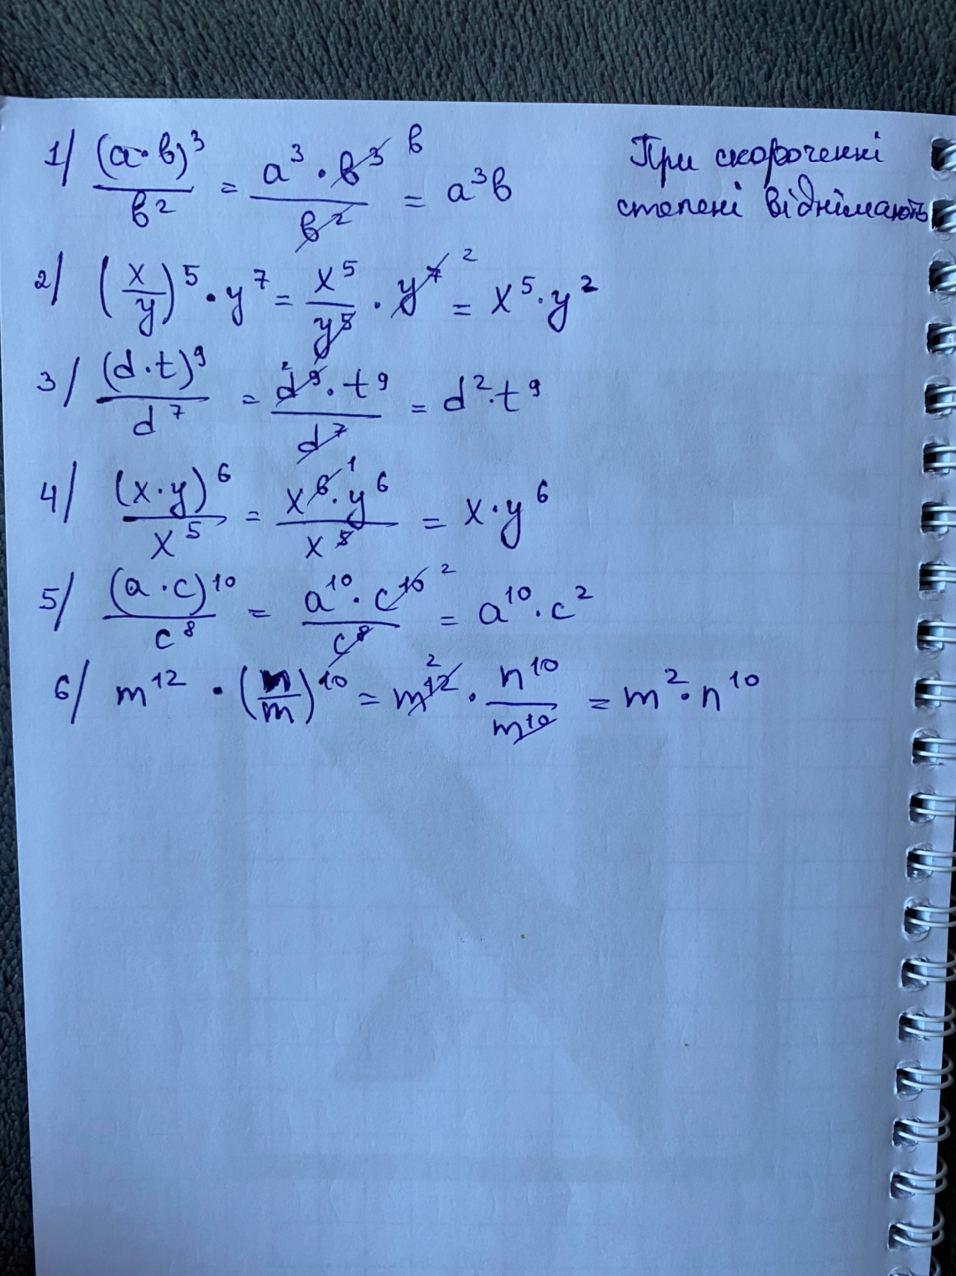 1/ (a·b)³/b² = a³·b³/b² b = a³b
При скороченні
степені віднімають
2/ (x/y)⁵·y⁷ = x⁵/y⁵ · y⁷ ² = x⁵·y²
3/ (d·t)⁹/d⁷ = ² d⁹·t⁹/d⁷ = d²·t⁹
4/ (x·y)⁶/x⁵ = x⁶ ¹·y⁶/x⁵ = x·y⁶
5/ (a·c)¹⁰/c⁸ = a¹⁰·c¹⁰ ²/c⁸ = a¹⁰·c²
6/ m¹²·(n/m)¹⁰ = m¹² ² · n¹⁰/m¹⁰ = m²·n¹⁰